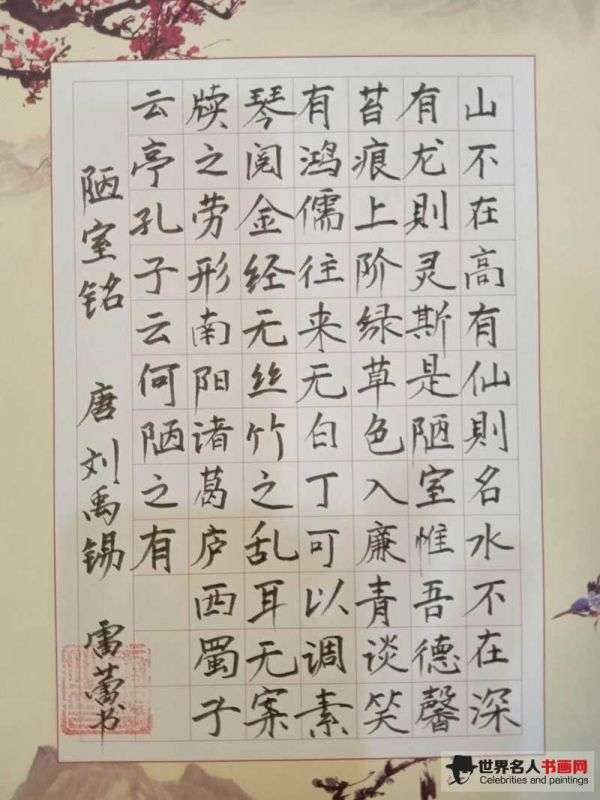 山不在高有仙則名水不在深
有龙則灵斯是陋室惟吾德馨
苔痕上阶绿草色入廉青谈笑
有鸿儒往来无白丁可以调素
琴阅金经无丝竹之乱耳无案
牍之劳形南阳诸葛庐西蜀子
云亭孔子云何陋之有
陋室铭 唐刘禹锡 雷蕾书
世界名人书画网
Celebrities and paintings